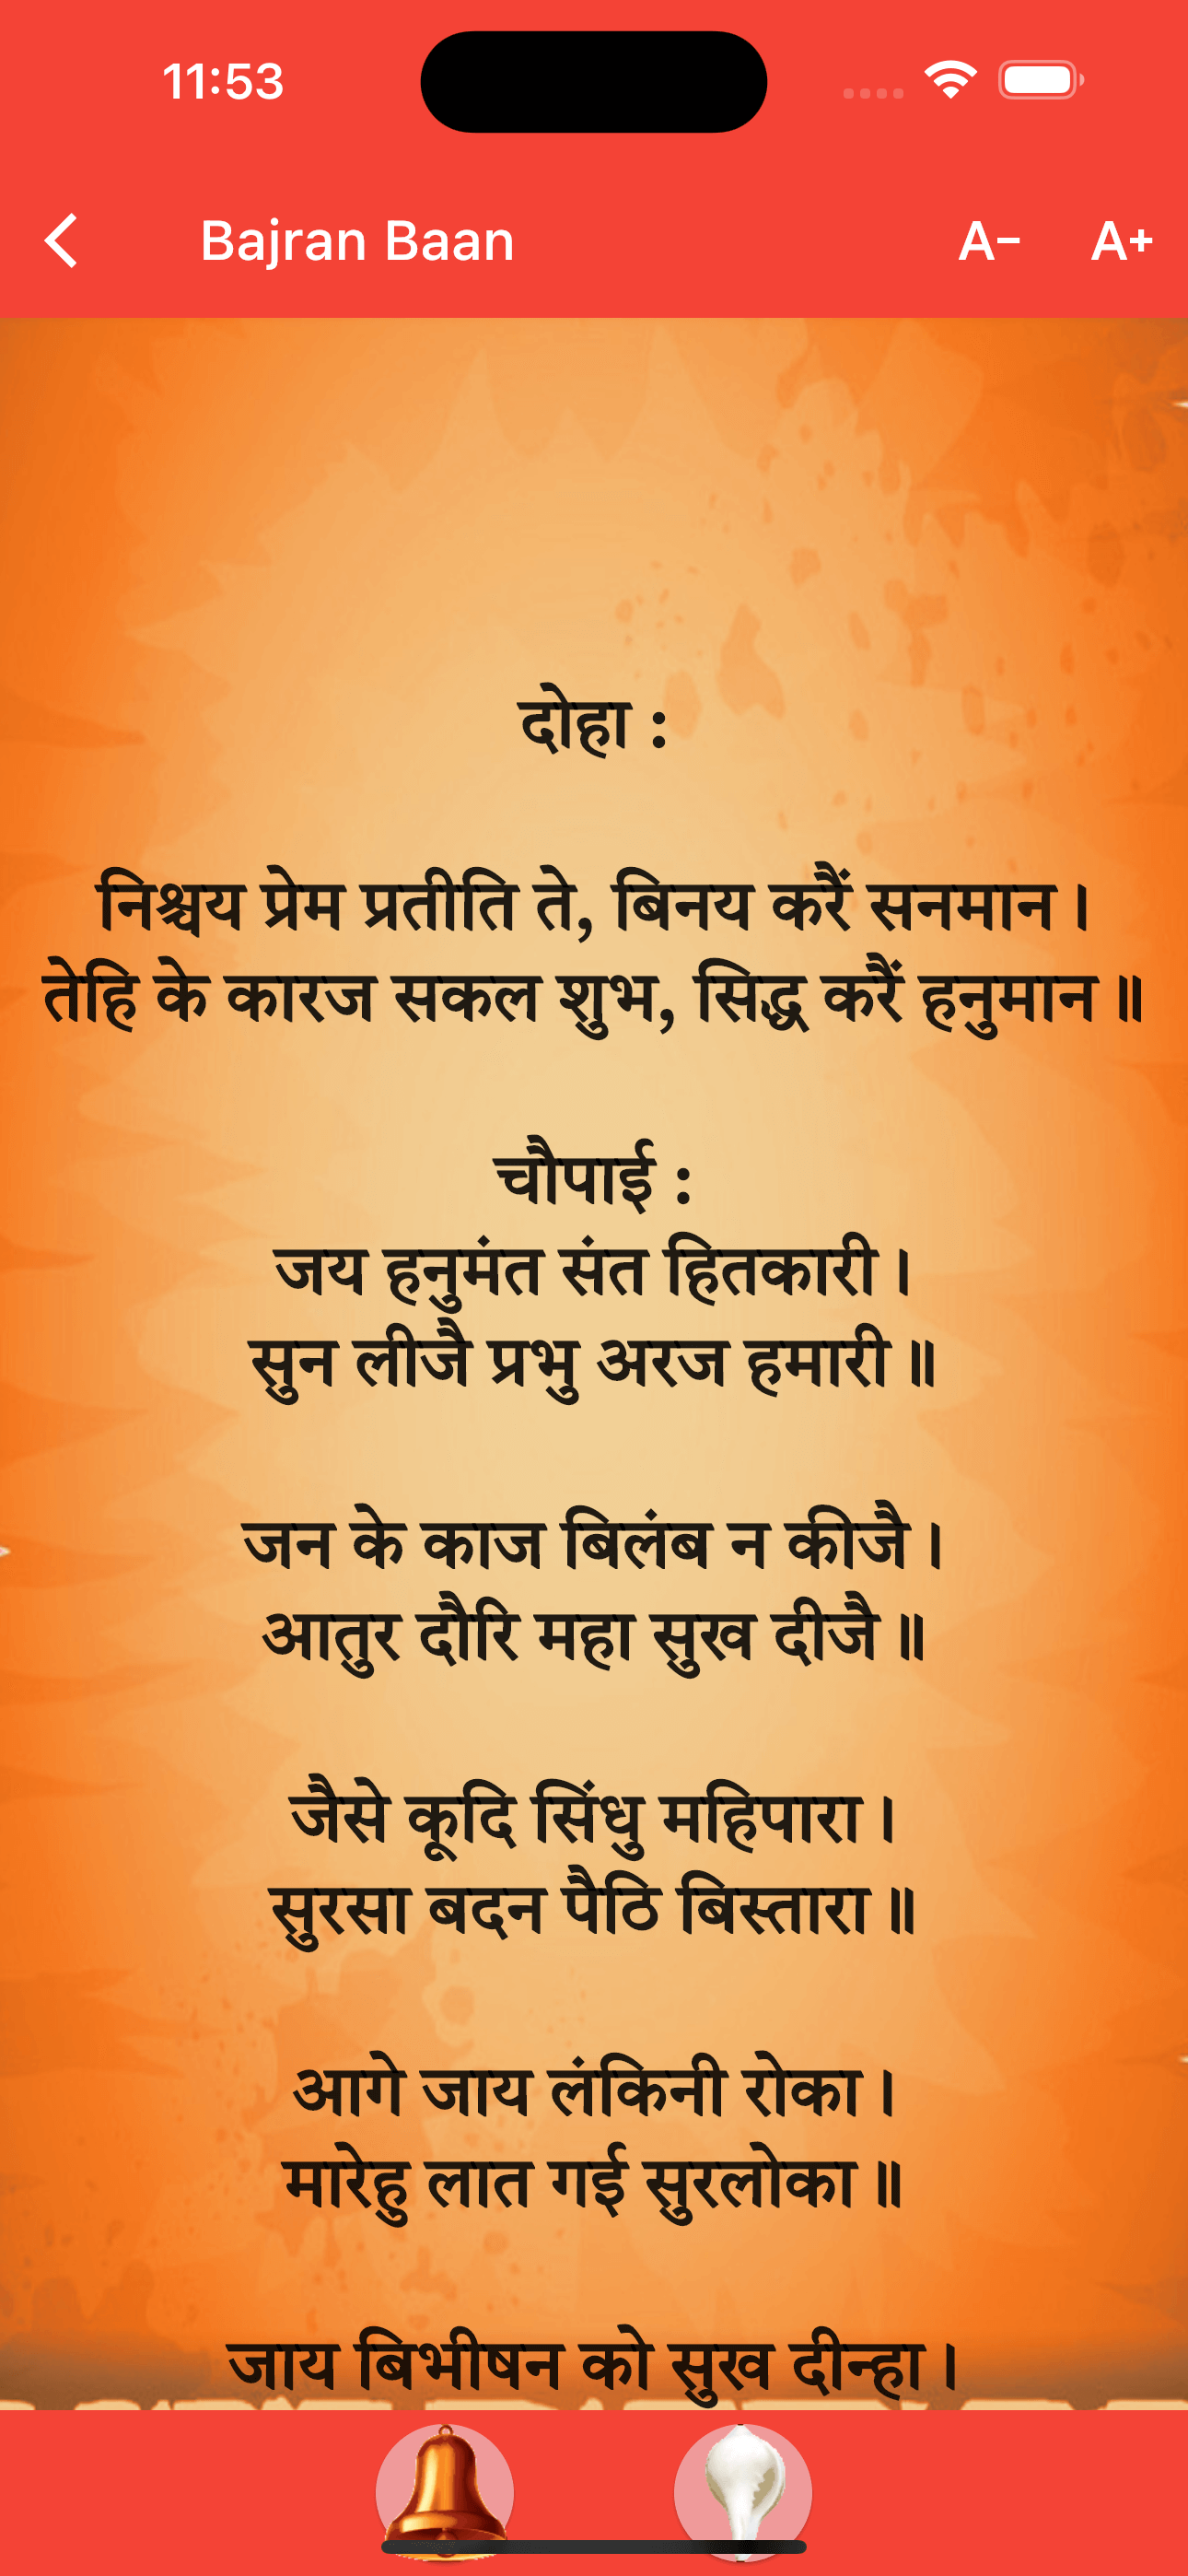 11:53
Bajran Baan
A-
A+
दोहा :
निश्चय प्रेम प्रतीति ते, बिनय करैं सनमान।
तेहि के कारज सकल शुभ, सिद्ध करैं हनुमान॥
चौपाई :
जय हनुमंत संत हितकारी।
सुन लीजै प्रभु अरज हमारी॥
जन के काज बिलंब न कीजै।
आतुर दौरि महा सुख दीजै॥
जैसे कूदि सिंधु महिपारा।
सुरसा बदन पैठि बिस्तारा॥
आगे जाय लंकिनी रोका।
मारेहु लात गई सुरलोका॥
जाय बिभीषन को सुख दीन्हा।